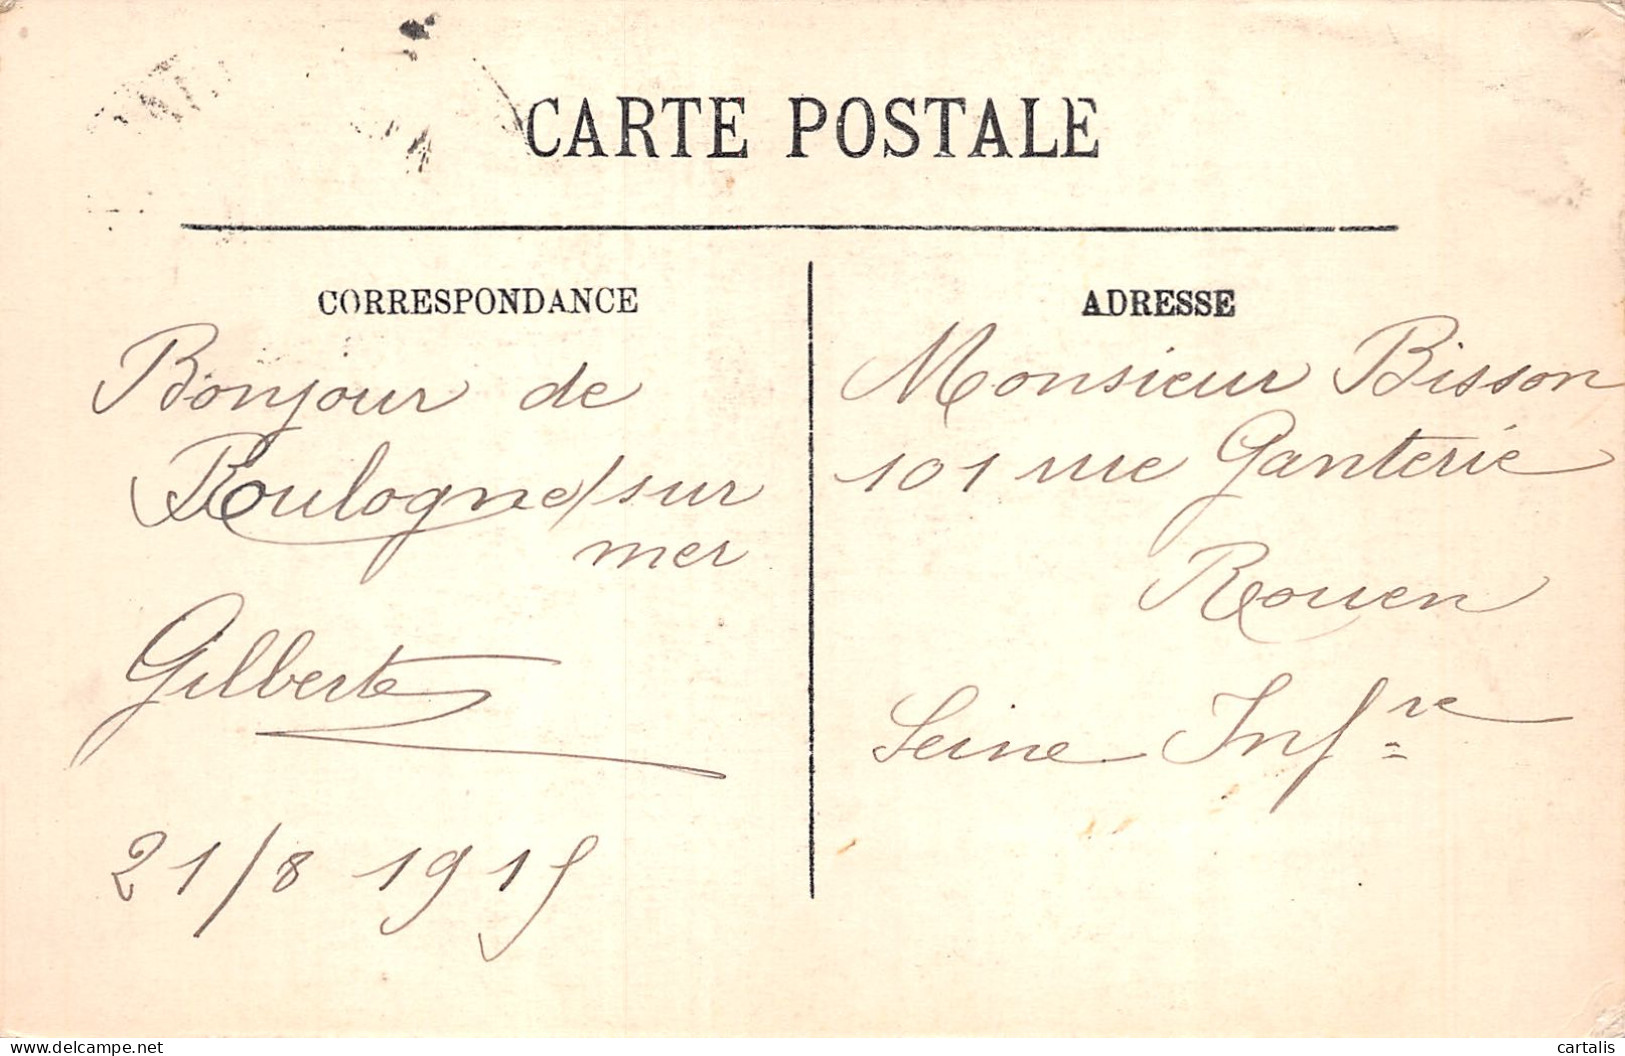 CARTE POSTALE
CORRESPONDANCE
Bonjour de
Boulogne/sur
mer
Gilberte
21/8 1915
ADRESSE
Monsieur Bisson
101 rue Ganterie
Rouen
Seine Infre
delcampe.net
cartalis